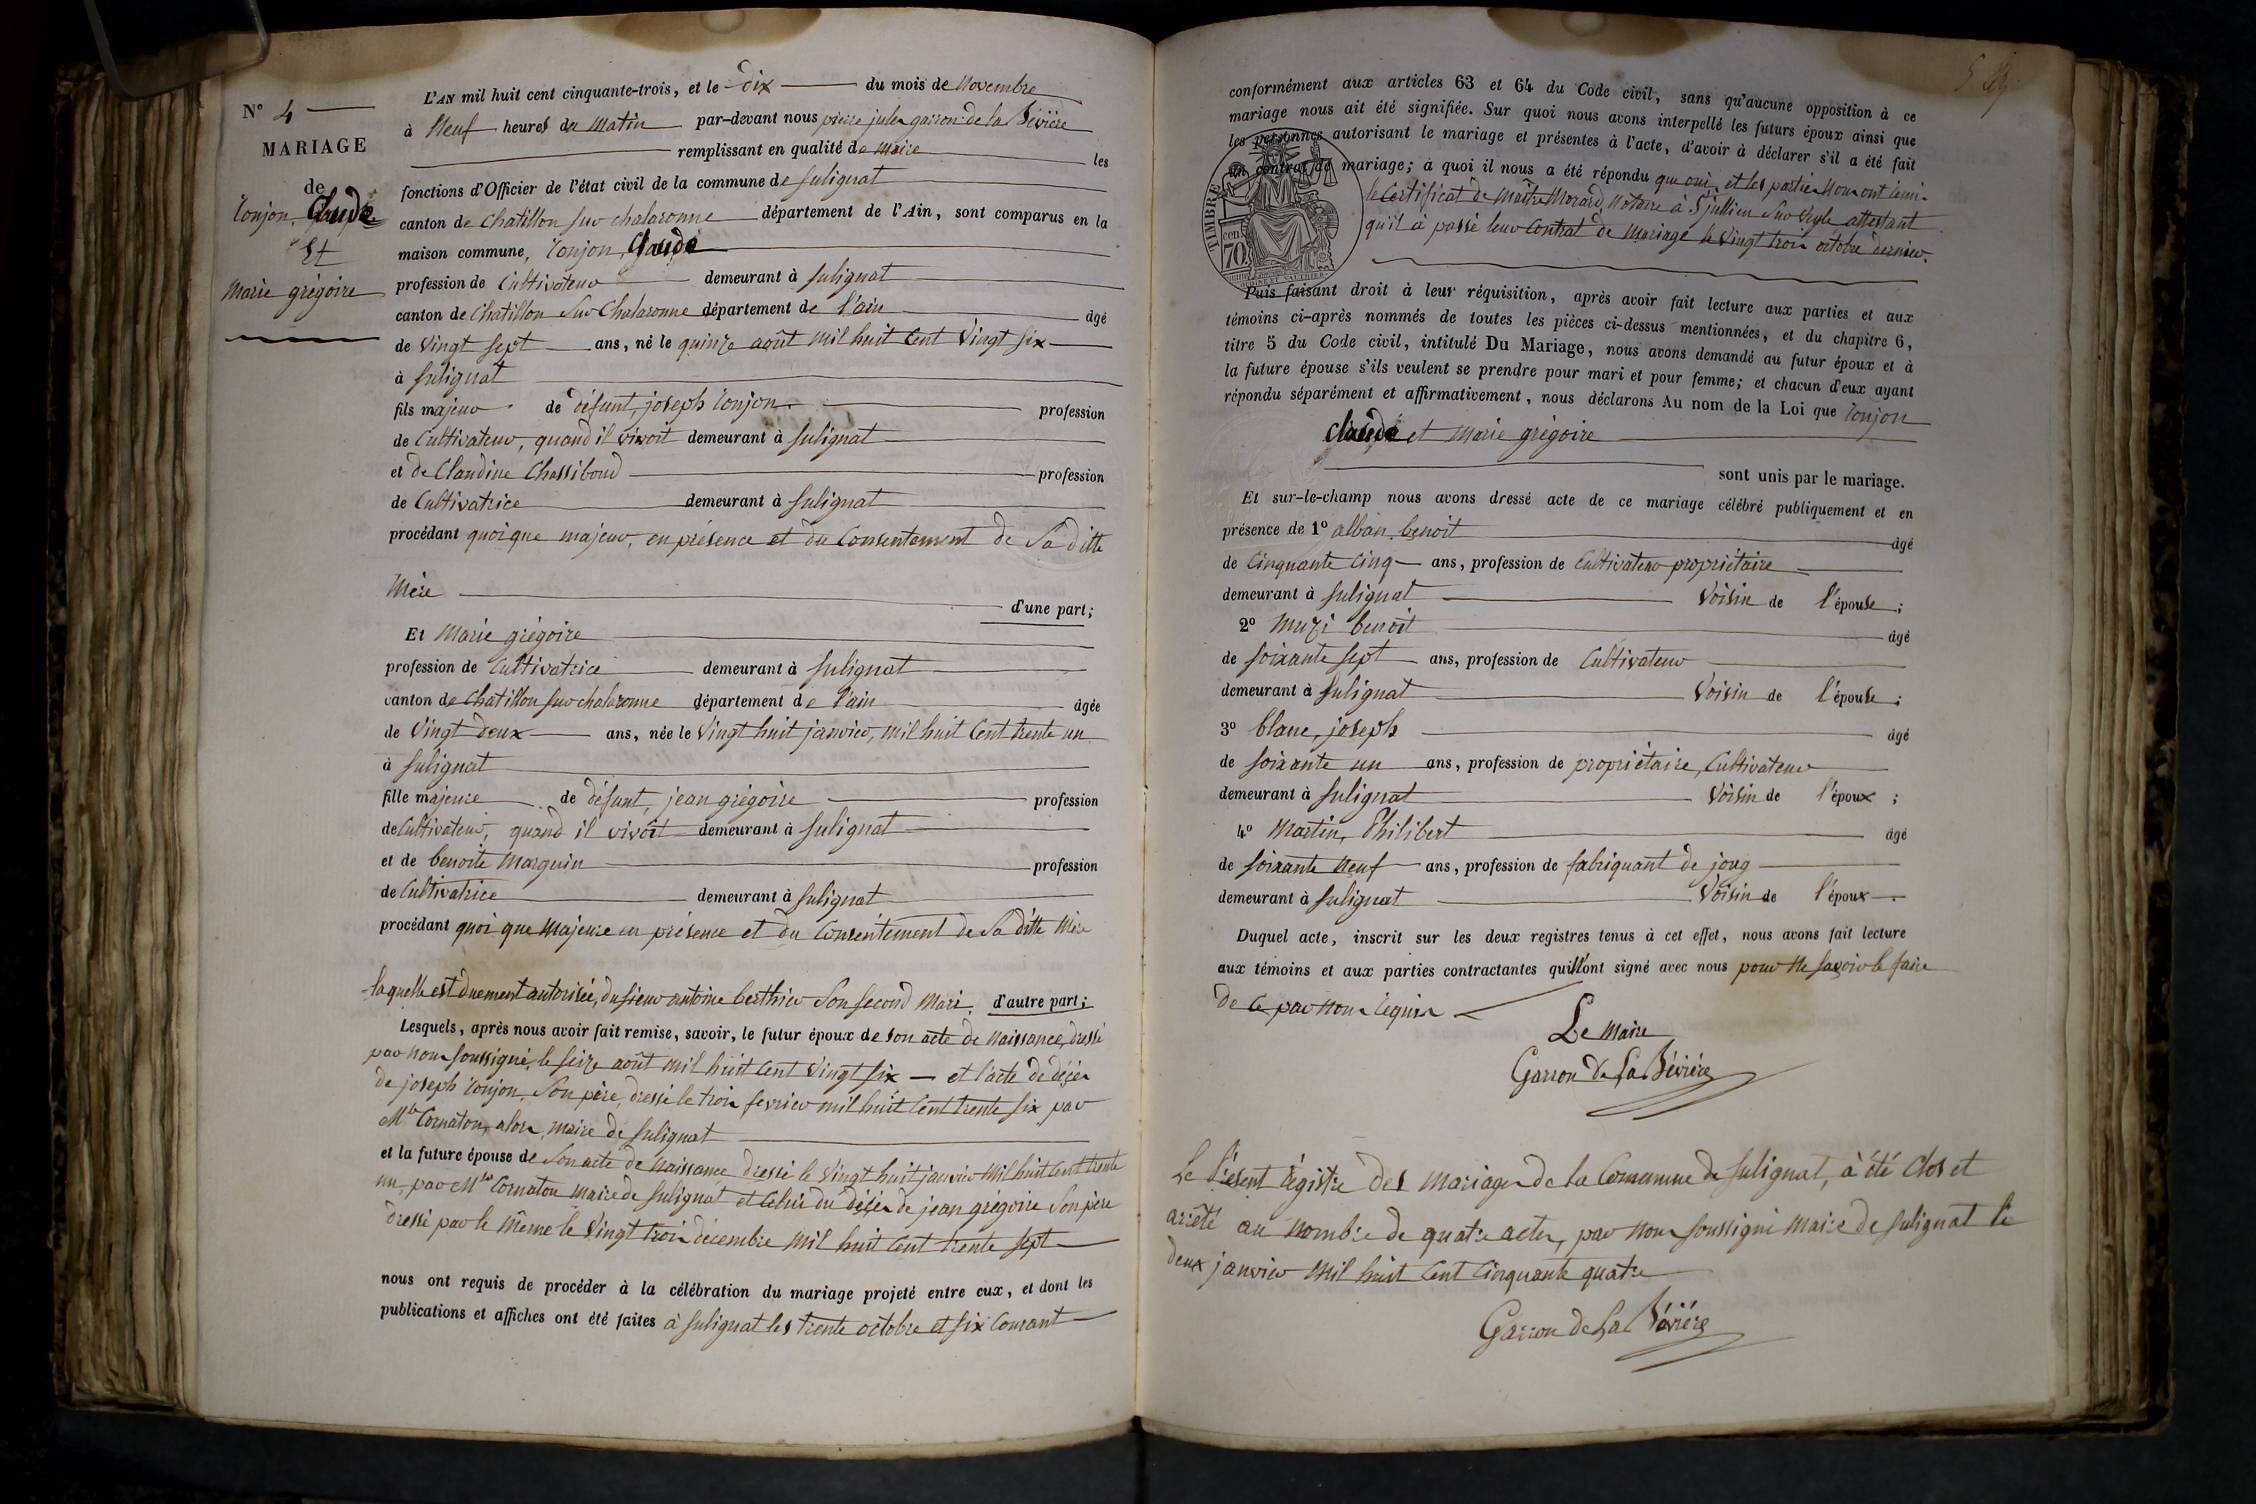 N° 4
MARIAGE
de
Conjon Claude
Et
Marie grégoire
L'AN mil huit cent cinquante-trois, et le dix du mois de Novembre
à Neuf heures du Matin par-devant nous pierre jules garron de la Bévière
remplissant en qualité de Maire les
fonctions d'Officier de l'état civil de la commune de Sulignat
canton de Chatillon sur chalaronne département de l'Ain, sont comparus en la
maison commune, Conjon, Claude
profession de Cultivateur demeurant à Sulignat
canton de Chatillon Sur Chalaronne département de l'ain âgé
de Vingt sept ans, né le quinze août mil huit Cent Vingt six
à Sulignat
fils majeur de défunt, joseph Conjon profession
de Cultivateur, quand il vivoit demeurant à Sulignat
et de Claudine Chassiboud profession
de Cultivatrice demeurant à Sulignat
procédant quoique majeur, en présence et du Consentement de Sa ditte
Mère d'une part;
Et Marie grégoire
profession de Cultivatrice demeurant à Sulignat
canton de Chatillon sur chalaronne département de l'ain âgée
de Vingt deux ans, née le Vingt huit janvier, mil huit Cent trente un
à Sulignat
fille majeure de défunt, jean grégoire profession
de Cultivateur, quand il vivoit demeurant à Sulignat
et de benoite Marguin profession
de Cultivatrice demeurant à Sulignat
procédant quoi que Majeure en présence et du Consentement de Sa ditte Mère
laquelle est duement autorisée, du sieur antoine berthier Son second Mari. d'autre part;
Lesquels, après nous avoir fait remise, savoir, le futur époux de son acte de Naissance, dressé
par nous soussigné, le seize août mil huit Cent Vingt six — et l'acte de décès
de joseph Conjon, Son père, dressé le trois fevrier mil huit Cent trente six par
Mr Cornaton, alors, maire de Sulignat
et la future épouse de Son acte de Naissance dressé le Vingt huit janvier Mil huit Cent trente
un, par Mr Cornaton Maire de Sulignat et Celui du décès de jean grégoire Son père
dressé par le Même le Vingt trois décembre Mil huit Cent trente sept
nous ont requis de procéder à la célébration du mariage projeté entre eux, et dont les
publications et affiches ont été faites à Sulignat les trente octobre et six Courant
conformément aux articles 63 et 64 du Code civil, sans qu'aucune opposition à ce
mariage nous ait été signifiée. Sur quoi nous avons interpellé les futurs époux ainsi que
les personnes autorisant le mariage et présentes à l'acte, d'avoir à déclarer s'il a été fait
un contrat de mariage; à quoi il nous a été répondu que oui, et les parties Nous ont remi-
le Certificat de Maître Morard, Notaire à St jullien Sur Veyle attestant
qu'il à passé leur Contrat de Mariage le Vingt trois octobre dernier.
TIMBRE
cen
70
Puis faisant droit à leur réquisition, après avoir fait lecture aux parties et aux
témoins ci-après nommés de toutes les pièces ci-dessus mentionnées, et du chapitre 6,
titre 5 du Code civil, intitulé Du Mariage, nous avons demandé au futur époux et à
la future épouse s'ils veulent se prendre pour mari et pour femme; et chacun d'eux ayant
répondu séparément et affirmativement, nous déclarons Au nom de la Loi que Conjon
Claude et Marie grégoire
sont unis par le mariage.
Et sur-le-champ nous avons dressé acte de ce mariage célébré publiquement et en
présence de 1° alban, benoit âgé
de Cinquante Cinq ans, profession de Cultivateur propriétaire
demeurant à Sulignat Voisin de l'épouse;
2° Muzi benoit âgé
de Soixante sept ans, profession de Cultivateur
demeurant à Sulignat Voisin de l'épouse;
3° blanc, joseph âgé
de Soixante un ans, profession de propriétaire, Cultivateur
demeurant à Sulignat Voisin de l'époux;
4° Martin, Philibert âgé
de Soixante Neuf ans, profession de fabriquant de joug
demeurant à Sulignat Voisin de l'époux.
Duquel acte, inscrit sur les deux registres tenus à cet effet, nous avons fait lecture
aux témoins et aux parties contractantes qui n'ont signé avec nous pour Ne Savoir le faire
de Ce par nous requis
Le Maire
Garron De La Bévière
Le Présent Régistre des Mariages de la Commune de Sulignat, à été Clos et
arrêté au Nombre de quatre actes, par Nous soussigné Maire de Sulignat le
deux janvier Mil huit Cent Cinquante quatre
Garron De La Bévière